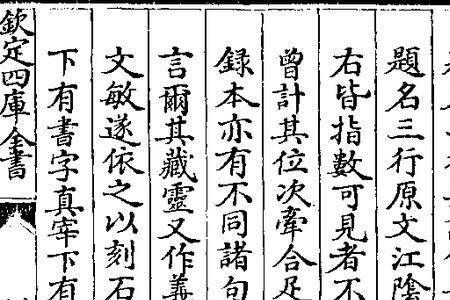 題名三行原文江陰
右皆指數可見者不
曾計其位次牽合足
録本亦有不同諸句
言爾其藏靈又作義
文敏遂依之以刻石
下有書字真宰下有
欽定四庫全書